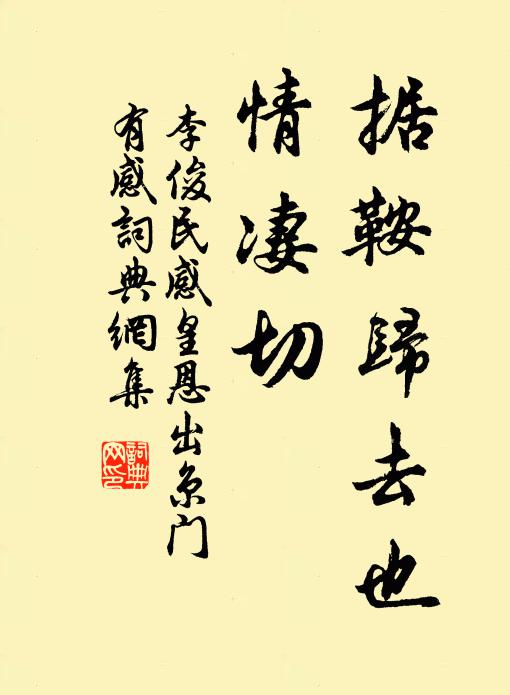 据鞍歸去也
情凄切
李俊民感皇恩出京门
有感詞典網集
詞典网印